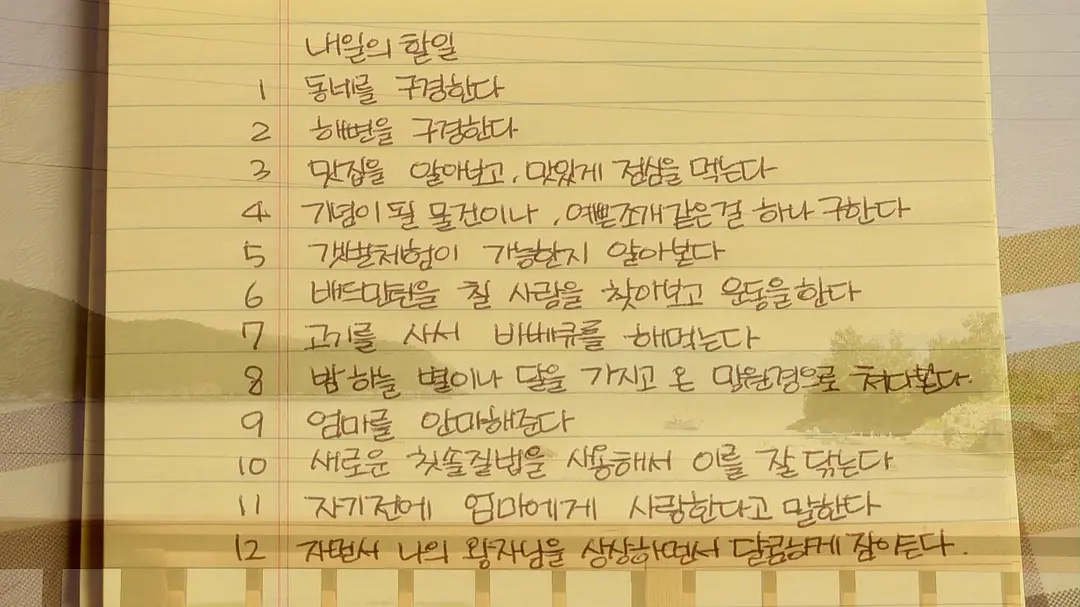 내일의 할일
1 동네를 구경한다
2 해변을 구경한다
3 맛집을 알아보고, 맛있게 점심을 먹는다
4 기념이 될 물건이나, 예쁜조개같은걸 하나 구한다
5 갯벌체험이 가능한지 알아본다
6 배드민턴을 칠 사람을 찾아보고 운동을한다
7 고기를 사서 바베큐를 해먹는다
8 밤하늘 별이나 달을 가지고 온 망원경으로 쳐다본다.
9 엄마를 안마해준다
10 새로운 칫솔질법을 사용해서 이를 잘 닦는다
11 자기전에 엄마에게 사랑한다고 말한다
12 자면서 나의 왕자님을 상상하면서 달콤하게 잠이든다.